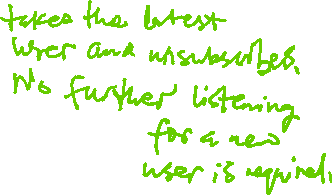 takes the latest
user and unsubscribes.
No further listening
for a new
user is required.